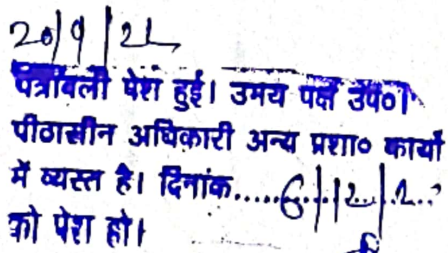 20/9/21
पत्रावली पेश हुई। उभय पक्ष उप०।
पीठासीन अधिकारी अन्य प्रशा० कार्यो
में व्यस्त है। दिनांक.....6/12/2..
को पेश हो।